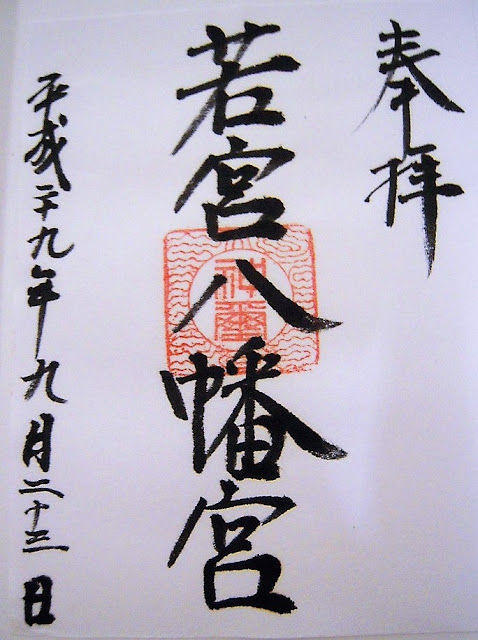 奉拝
若宮八幡宮
神璽
平成二十九年九月二十三日